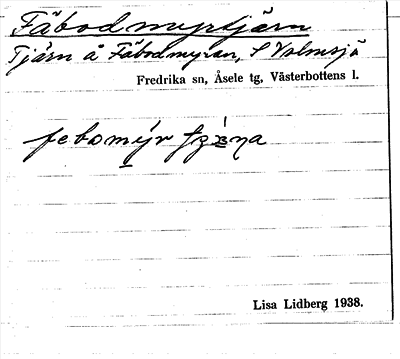 Fäbodmyrtjärn
Tjärn å Fäbodmyran, S Volmsjö
Fredrika sn, Åsele tg, Västerbottens l.
Lisa Lidberg 1938.